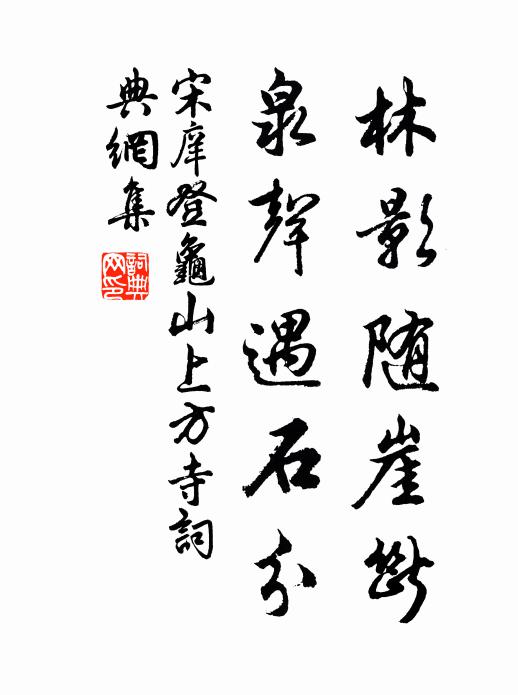 林影随崖斷
泉聲遇石分
宋庠登龜山上方寺詞
典網集
詞典网印